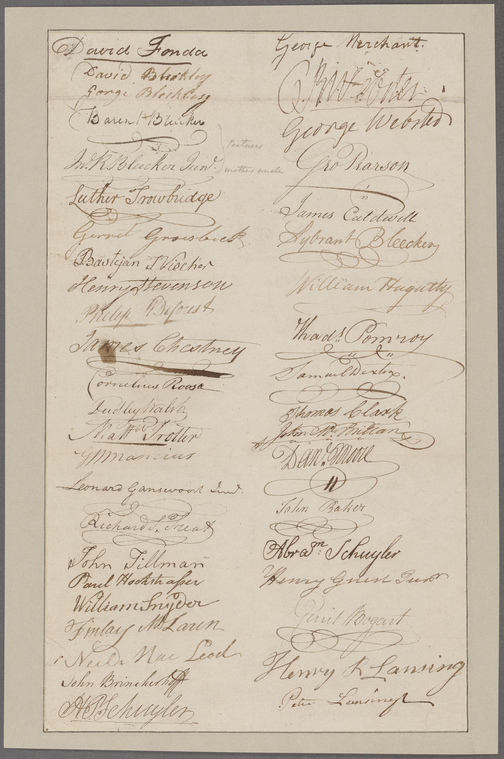 David Fonda
David Bleekley
George Bleekley
Baren H Bleecker
partners
Jn. R Bleecker Junr.
mother's uncle
Luther Trowbridge
Gerrit Groesbeeck
Bastejan T Vischer
Henry Stevenson
Philip Deforest
James Chestney
Cornelius Roosa
Dudley Walsh
Matthw Trotter
G W Mancius
Leonard Gansevoort Junr.
Richard S. Treat
John Tillman
Paul Hochstrasser
William Snyder
Finlay Mc Laren
Neil Mac Leod
John Brinckerhoff
H. P. Schuyler
George Merchant.
George Webster
Geo Pearson
James Caldwell
Sybrant Bleecker
William Hagutty
Thads. Pomroy
Samuel Dexter.
Thomas Clark
John Mc Millan
Danl.
John Baker
Abram. Schuyler
Henry Guest Junr
Gerrit Bogart
Henry R Lansing
Peter Lansingh